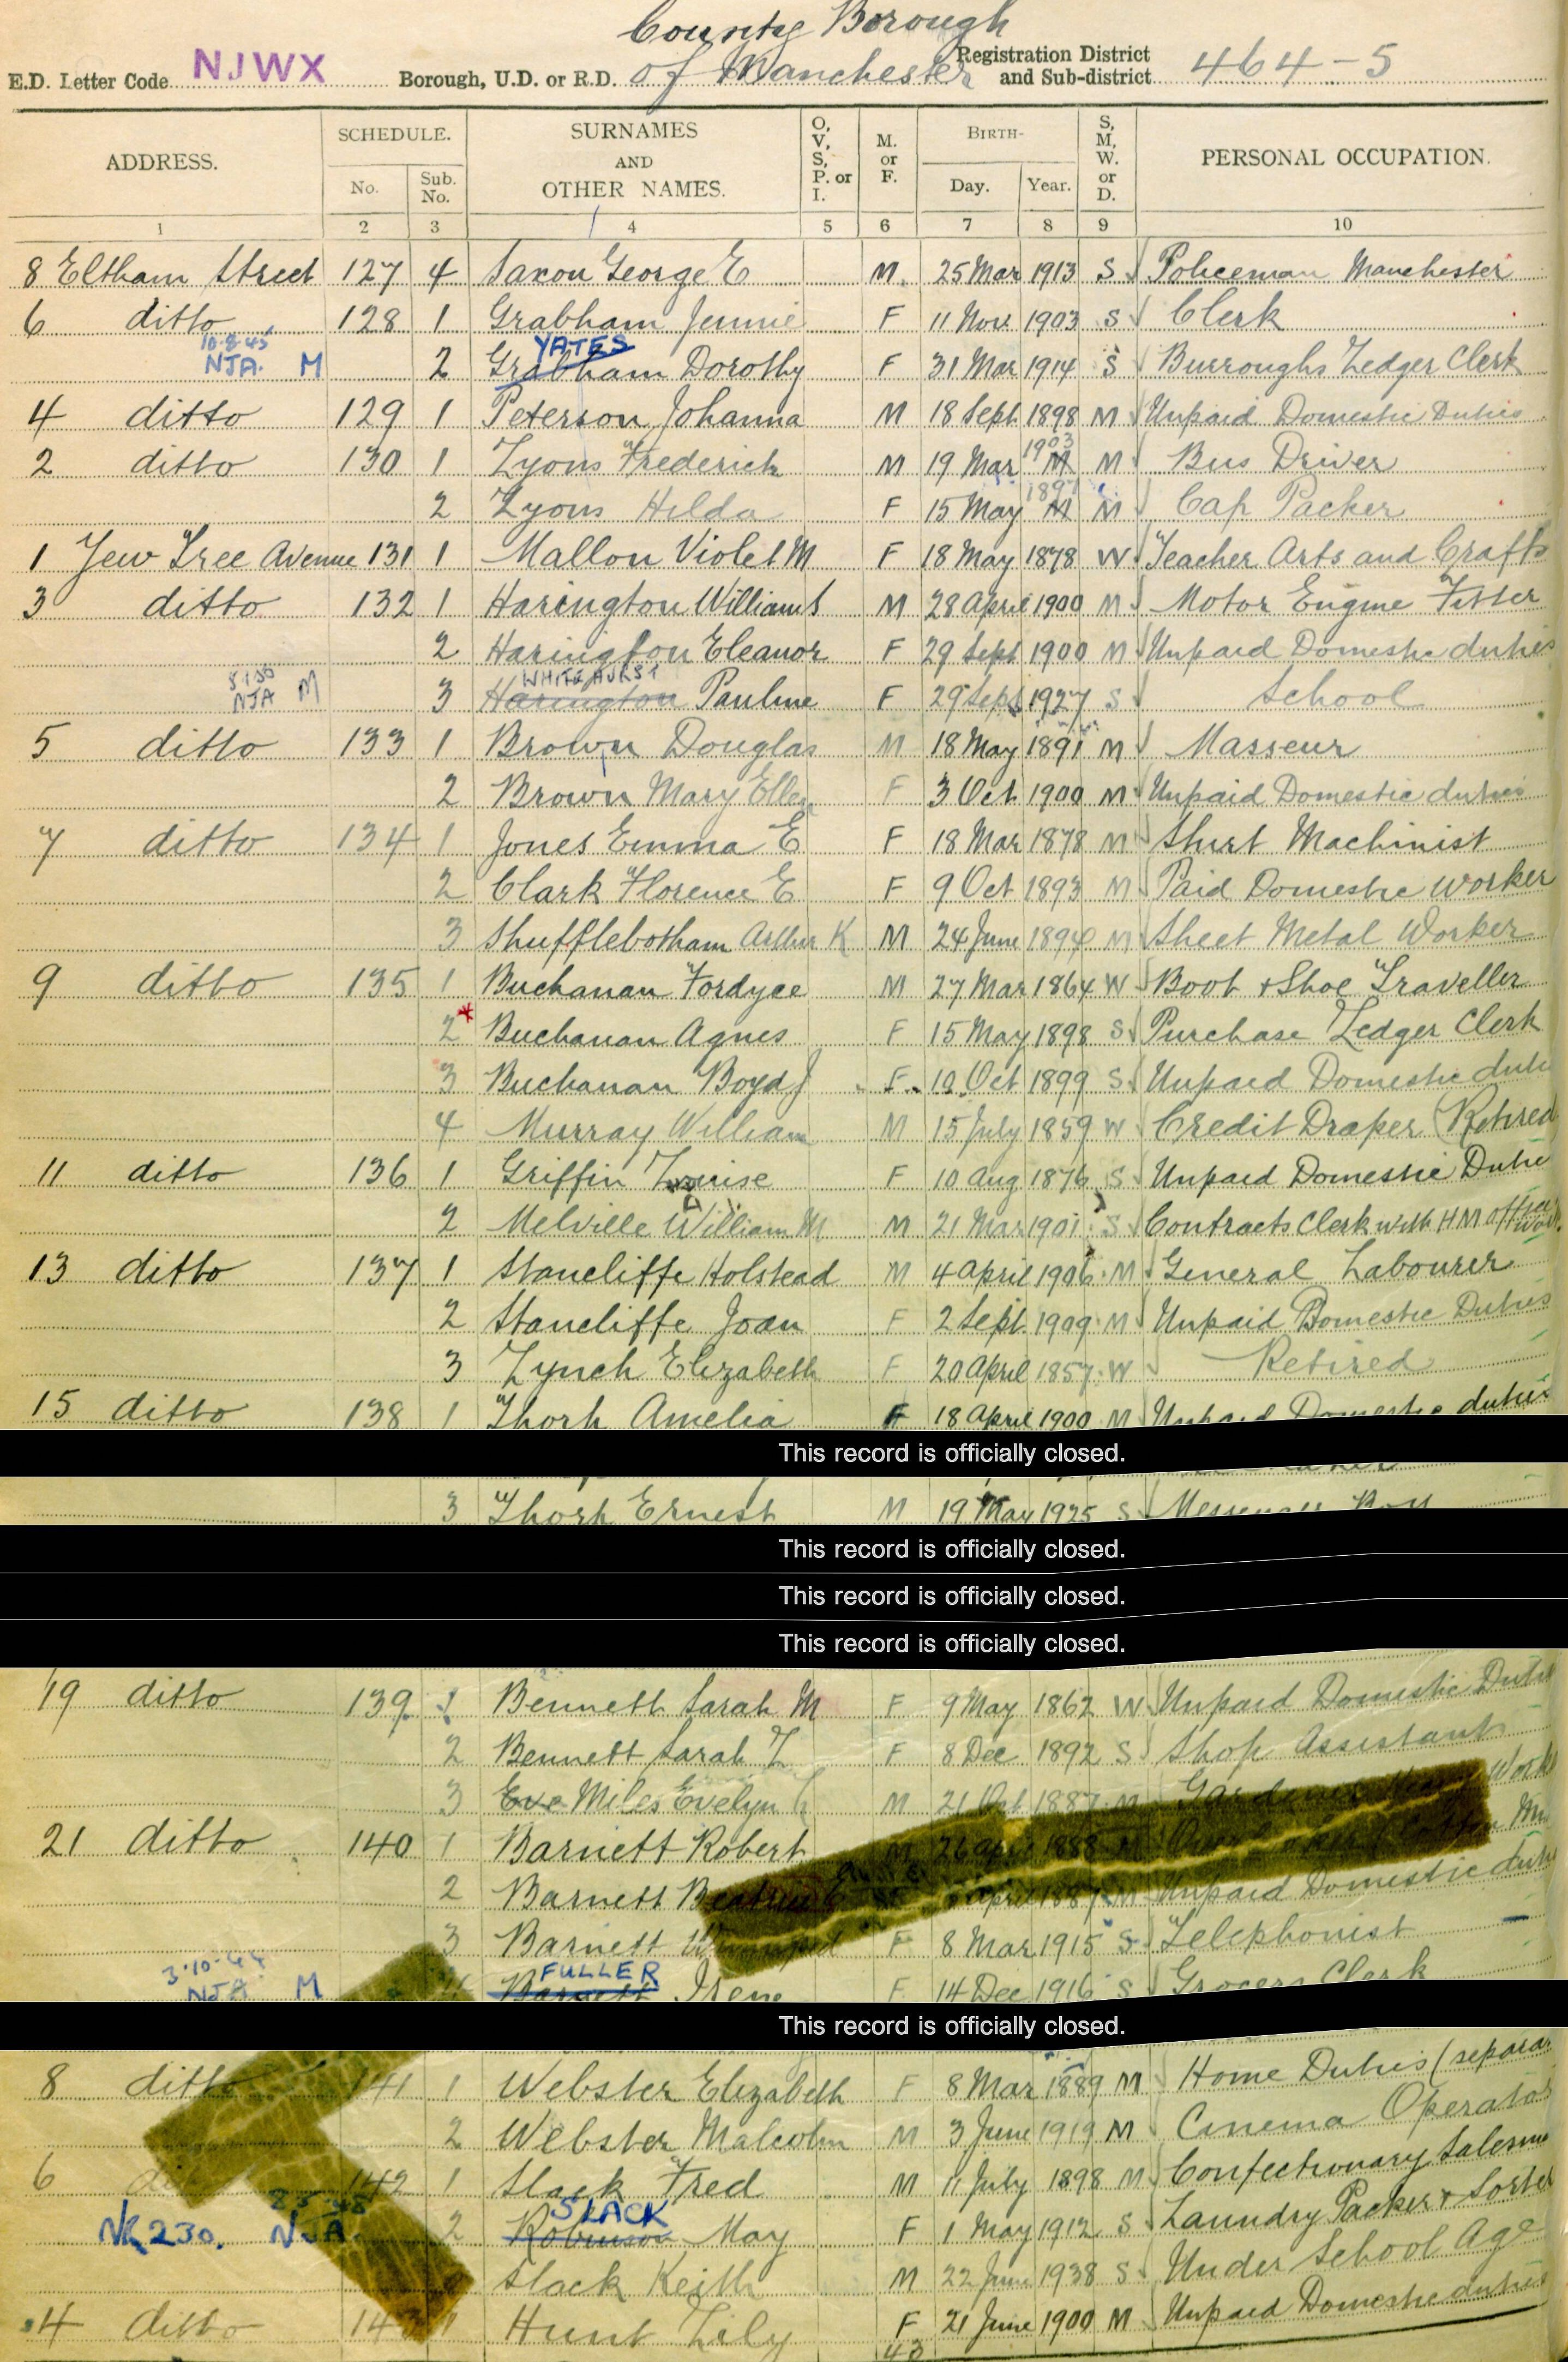 County Borough
E.D. Letter Code NJWX Borough, U.D. or R.D. of Manchester Registration District and Sub-district 464-5
ADDRESS. SCHEDULE. No. Sub. No. SURNAMES AND OTHER NAMES. O, V, S, P. or I. M. or F. BIRTH- Day. Year. S, M, W. or D. PERSONAL OCCUPATION.
1 2 3 4 5 6 7 8 9 10
8 Eltham Street 127 4 Saxon George E M 25 Mar 1913 S Policeman Manchester
6 ditto 128 1 Grabham Jennie F 11 Nov 1903 S Clerk
10-8-45 YATES
NJA. M 2 Grabham Dorothy F 31 Mar 1914 S Burroughs Ledger Clerk
4 ditto 129 1 Peterson Johanna M 18 Sept 1898 M Unpaid Domestic Duties
1903
2 ditto 130 1 Lyons Frederick M 19 Mar M M Bus Driver
1897
2 Lyons Hilda F 15 May M M Cap Packer
1 Yew Tree Avenue 131 1 Mallon Violet M F 18 May 1878 W Teacher Arts and Crafts
3 ditto 132 1 Harington William S M 28 April 1900 M Motor Engine Fitter
2 Harington Eleanor F 29 Sept 1900 M Unpaid Domestic duties
WHITEHURST
NJA M 3 Harington Pauline F 29 Sept 1927 S School
5 ditto 133 1 Brown Douglas M 18 May 1891 M Masseur
2 Brown Mary Ellen F 3 Oct 1900 M Unpaid Domestic duties
7 ditto 134 1 Jones Emma E F 18 Mar 1878 M Shirt Machinist
2 Clark Florence E F 9 Oct 1893 M Paid Domestic Worker
3 Shufflebotham Arthur K M 24 June 1890 M Sheet Metal Worker
9 ditto 135 1 Buchanan Fordyce M 27 Mar 1864 W Boot & Shoe Traveller
2* Buchanan Agnes F 15 May 1898 S Purchase Ledger Clerk
3 Buchanan Boyd J F 10 Oct 1899 S Unpaid Domestic duti
4 Murray William M 15 July 1859 W Credit Draper (Retired
11 ditto 136 1 Griffin Louise F 10 Aug 1876 S Unpaid Domestic Dutie
2 Melville William M M 21 Mar 1901 S Contracts Clerk with HM Office
13 ditto 137 1 Stancliffe Holstead M 4 April 1906 M General Labourer
2 Stancliffe Joan F 2 Sept 1909 M Unpaid Domestic Duties
3 Lynch Elizabeth F 20 April 1857 W Retired
15 ditto 138 1 Thorh Amelia F 18 April 1900 M Unpaid Domestic duties
This record is officially closed.
3 Thorh Ernest M 19 May 1925 S Messenger Boy
This record is officially closed.
This record is officially closed.
This record is officially closed.
19 ditto 139 1 Bennett Sarah M F 9 May 1862 W Unpaid Domestic Duti
2 Bennett Sarah L F 8 Dec 1892 S Shop Assistant
3 Eve Miles Evelyn M 21 Oct 1887 M Gardener Works
21 ditto 140 1 Barnett Robert M 26 April 1888 M
2 Barnett Beatrice F April 1887 M Unpaid Domestic duti
3 Barnett Winnifred F 8 Mar 1915 S Telephonist
3-10-44 FULLER
NJA M Barnett Irene F 14 Dec 1916 S Grocers Clerk
This record is officially closed.
8 ditto 141 1 Webster Elizabeth F 8 Mar 1889 M Home Duties (separa
2 Webster Malcolm M 3 June 1919 M Cinema Operator
6 142 1 Slack Fred M 11 July 1898 M Confectionary Salesm
SLACK
NR 230. NJA 2 Robinson May F 1 May 1912 S Laundry Packer & Sorter
Slack Keith M 22 June 1938 S Under School Age
4 ditto 143 1 Hunt Lily F 21 June 1900 M Unpaid Domestic duties
43